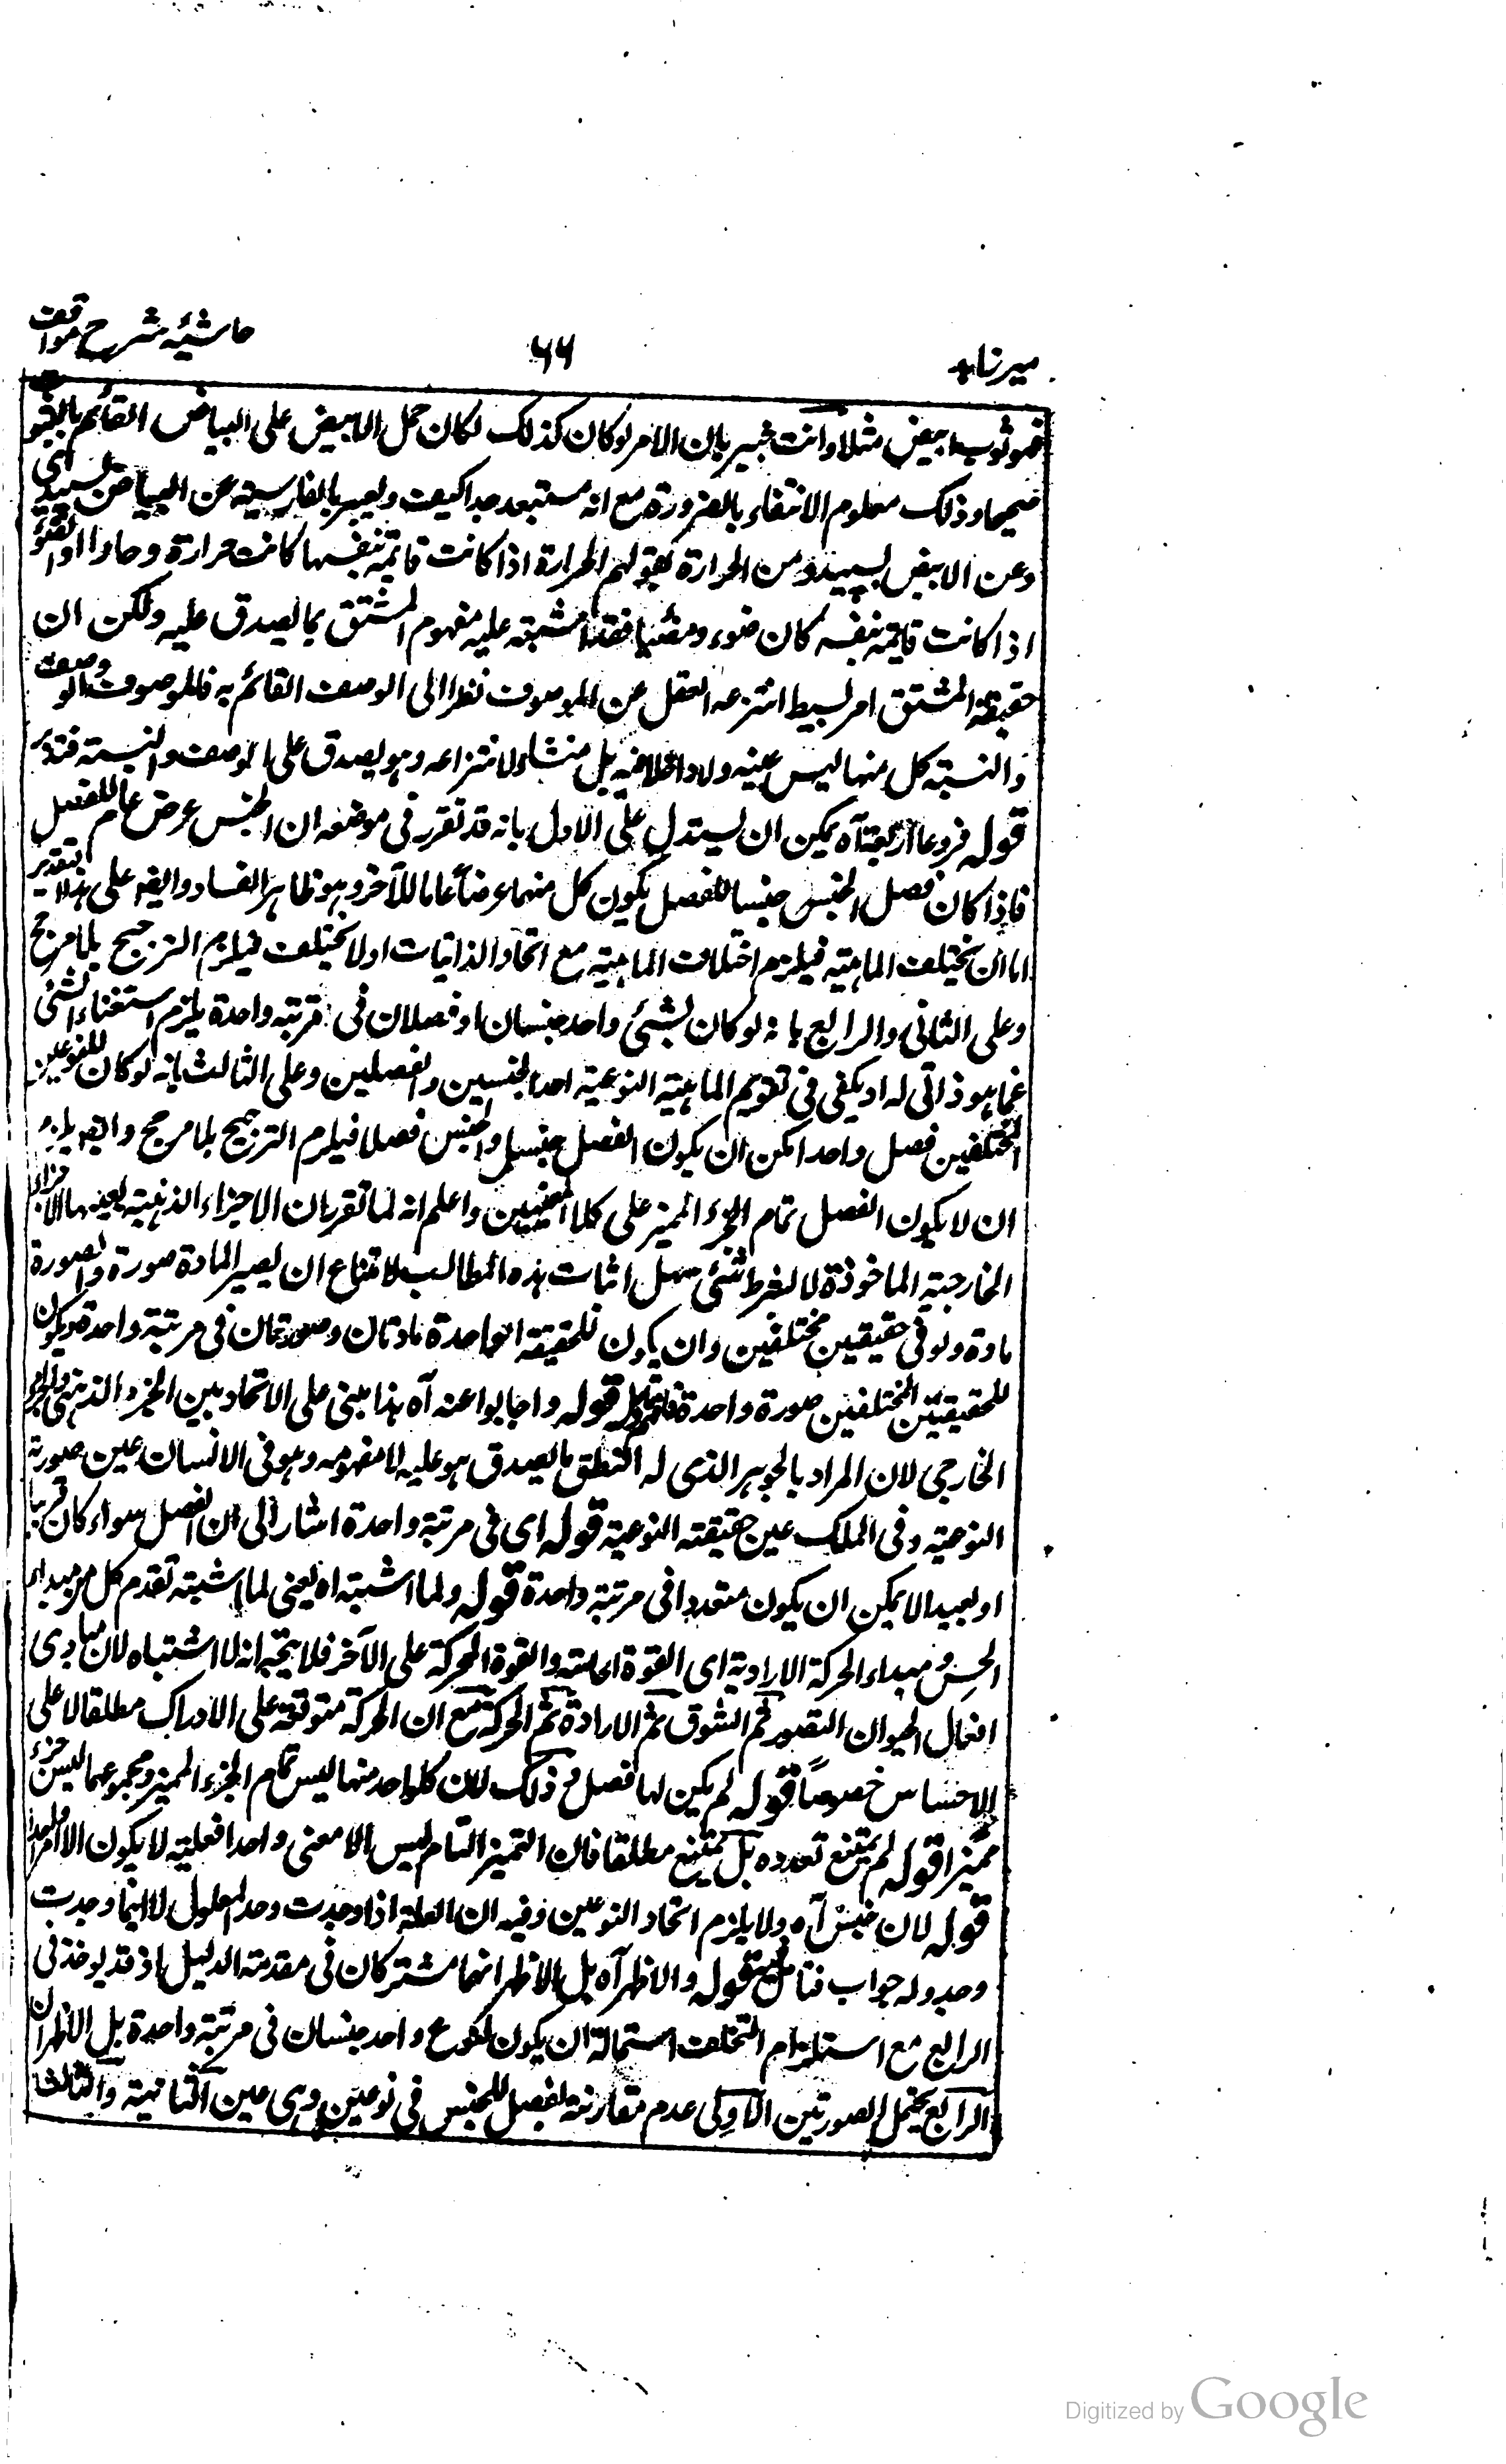 ميرزاهد
٦٦
حاشيہ شرح مواقف
فهو ثوب ابيض مثلا وانت خبير بان الامر لو كان كذلك لكان حمل الابيض على البياض القائم بالثوب
صحيحا وذلك معلوم الانتفاء بالضرورة مع انه مستبعد جدا كيف ويعبر بالفارسية عن البياض بسپيدى
وعن الابيض بسپيد ومن الحرارة بقولهم الحرارة اذا كانت قائمة بنفسها كانت حرارة وحارا والضوء
اذا كانت قائمة بنفسه كان ضوء ومضيأ فقد اشتبه عليه مفهوم المشتق بما يصدق عليه ولكن ان
حقيقة المشتق امر بسيط انتزعه العقل عن الموصوف نظرا الى الوصف القائم به فالموصوف والوصف
والنسبة كل منها ليس عينه ولا داخلا فيه بل منشاء لانتزاعه وهو يصدق على الوصف والنسبة فتدبر
قوله فروعا اربعة آه يمكن ان يستدل على الاول بانه قد تقرر فى موضعه ان الجنس عرض عام للفصل
فاذا كان فصل الجنس جنسا للفصل يكون كل منهما عرضا عاما للآخر وهو ظاهر الفساد وايضا على هذا التقدير
اما ان يختلف الماهية فيلزم اختلاف الماهية مع اتحاد الذاتيات او لا يختلف فيلزم الترجيح بلا مرجح
وعلى الثانى والرابع بانه لو كان لشئ واحد جنسان او فصلان فى مرتبة واحدة يلزم استغناء الشئ
عما هو ذاتى له اذ يكفى فى تقويم الماهية النوعية احد الجنسين والفصلين وعلى الثالث بانه لو كان للنوعين
المختلفين فصل واحد امكن ان يكون الفصل جنسا والجنس فصلا فيلزم الترجيح بلا مرجح وايضا يلزم
ان لا يكون الفصل تمام الجزء المميز على كلا المعنيين واعلم انه لما تقرر ان الاجزاء الذهنية بعينها الاجزاء
الخارجية الماخوذة لا بشرط شئ سهل اثبات هذه المطالب لامتناع ان يصير المادة صورة والصورة
مادة ولو فى حقيقتين مختلفين وان يكون للحقيقة الواحدة مادتان وصورتان فى مرتبة واحدة ويكون
للحقيقتين المختلفين صورة واحدة قوله واجابوا عنه آه هذا مبنى على الاتحاد بين الجزء الذهنى والجزء
الخارجى لان المراد بالجوهر الذى له النطق ما يصدق هو عليه لا مفهومه وهو فى الانسان عين صورته
النوعية وفى الملك عين حقيقته النوعية قوله اى فى مرتبة واحدة اشار الى ان الفصل سواء كان قريبا
او بعيدا لا يمكن ان يكون متعددا فى مرتبة واحدة قوله ولما اشتبه آه يعنى لما اشتبه تقدم كل من مبداء
الحس ومبداء الحركة الارادية اى القوة الحاسة والقوة المحركة على الآخر فلا يتجه انه لا اشتباه لان مبادى
افعال الحيوان التصور ثم الشوق ثم الارادة ثم الحركة مع ان الحركة متوقفة على الادراك مطلقا لا على
الاحساس خصوصا قوله لم يكن لها فصل وذلك لان كلا واحد منها ليس تمام الجزء المميز ومجموعهما ليس جزء
مميزا قوله لم يمتنع تعدده بل يمتنع مطلقا فان التميز التام ليس الا معنى واحدا فعليته لا يكون الا امرا واحدا
قوله لان جنس آه ولا يلزم اتحاد النوعين وفيه ان العلة اذا وجدت وجد المعلول لا اينما وجدت
وجد وله جواب قوله والاظهر آه بل الاظهر انهما مشتركان فى مقدمة الدليل اذ قد يوخذ فى
الرابع مع استلزام التخلف استحالة ان يكون لنوع واحد جنسان فى مرتبة واحدة بل الاظهر ان
الرابع يحتمل الصورتين الاولى عدم مقارنة الفصل للجنس فى نوعين وهى عين الثانية والثالث